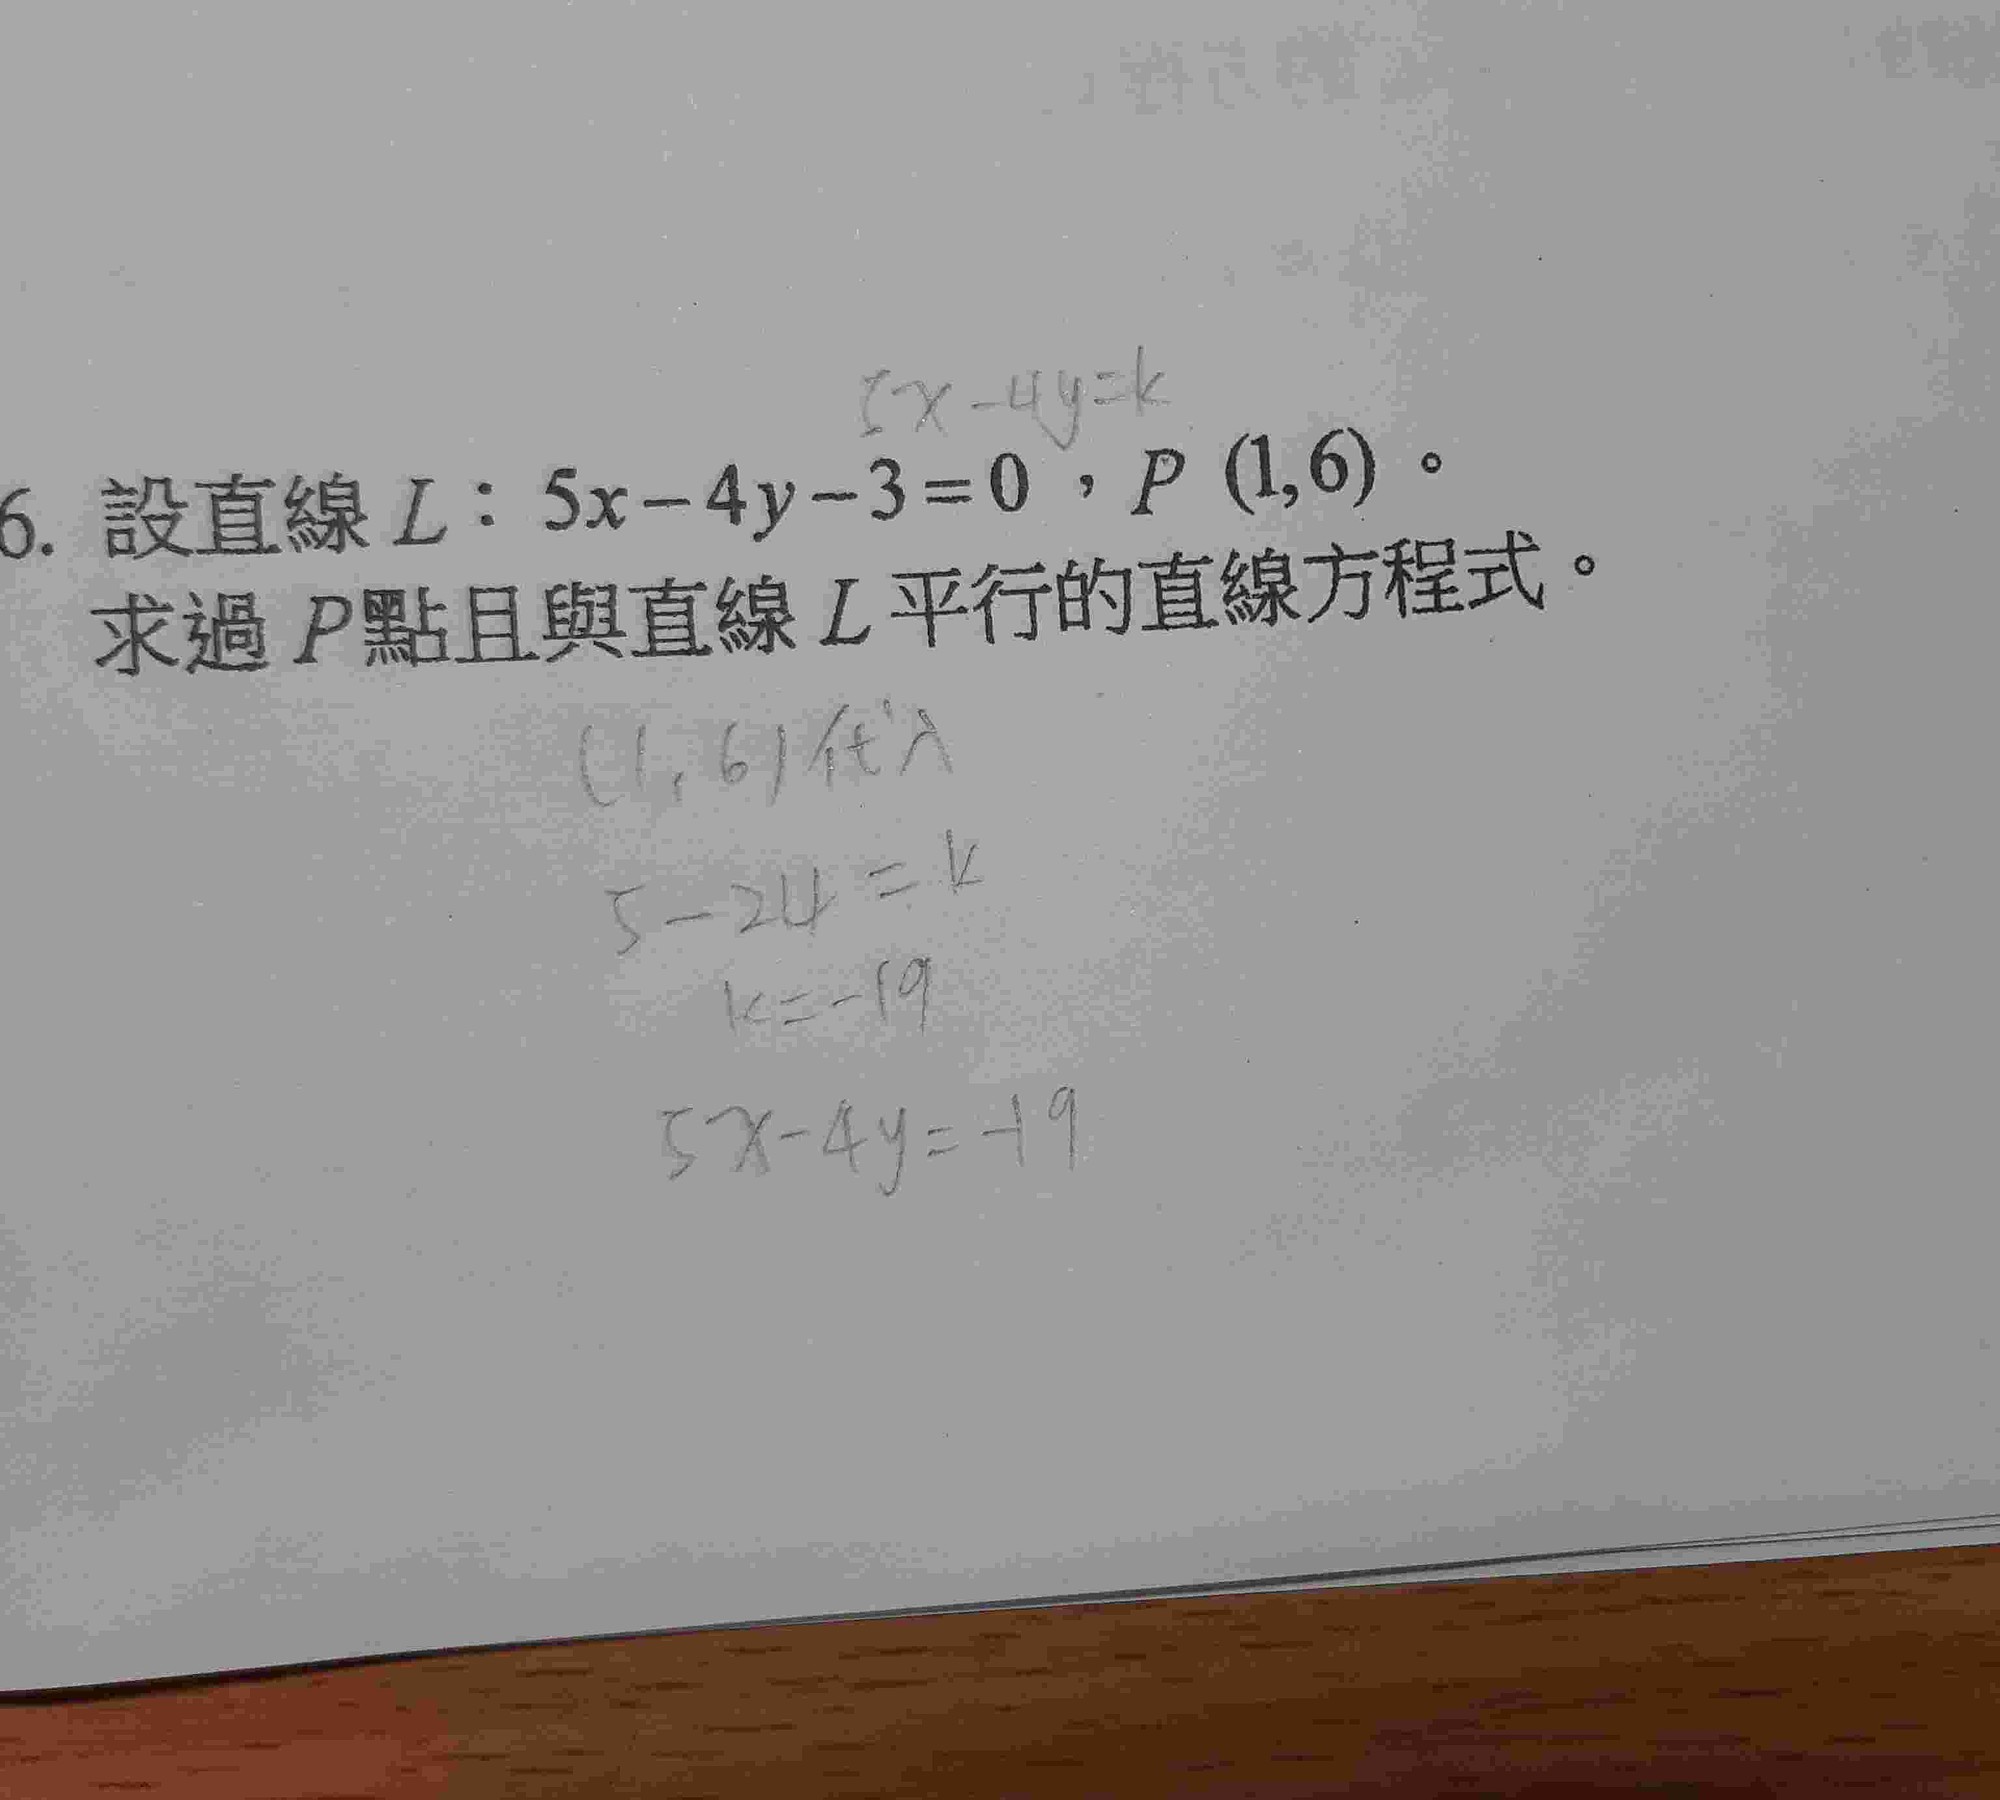 5x-4y=k
6. 設直線 L：5x-4y-3=0，P (1,6)。
求過 P 點且與直線 L 平行的直線方程式。
(1,6)代入
5-24=k
k=-19
5x-4y=-19